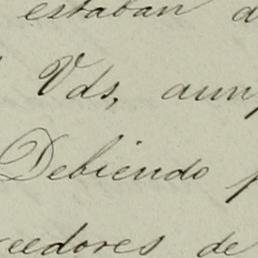 estaban
Vds, aun
Debiendo
eedores de